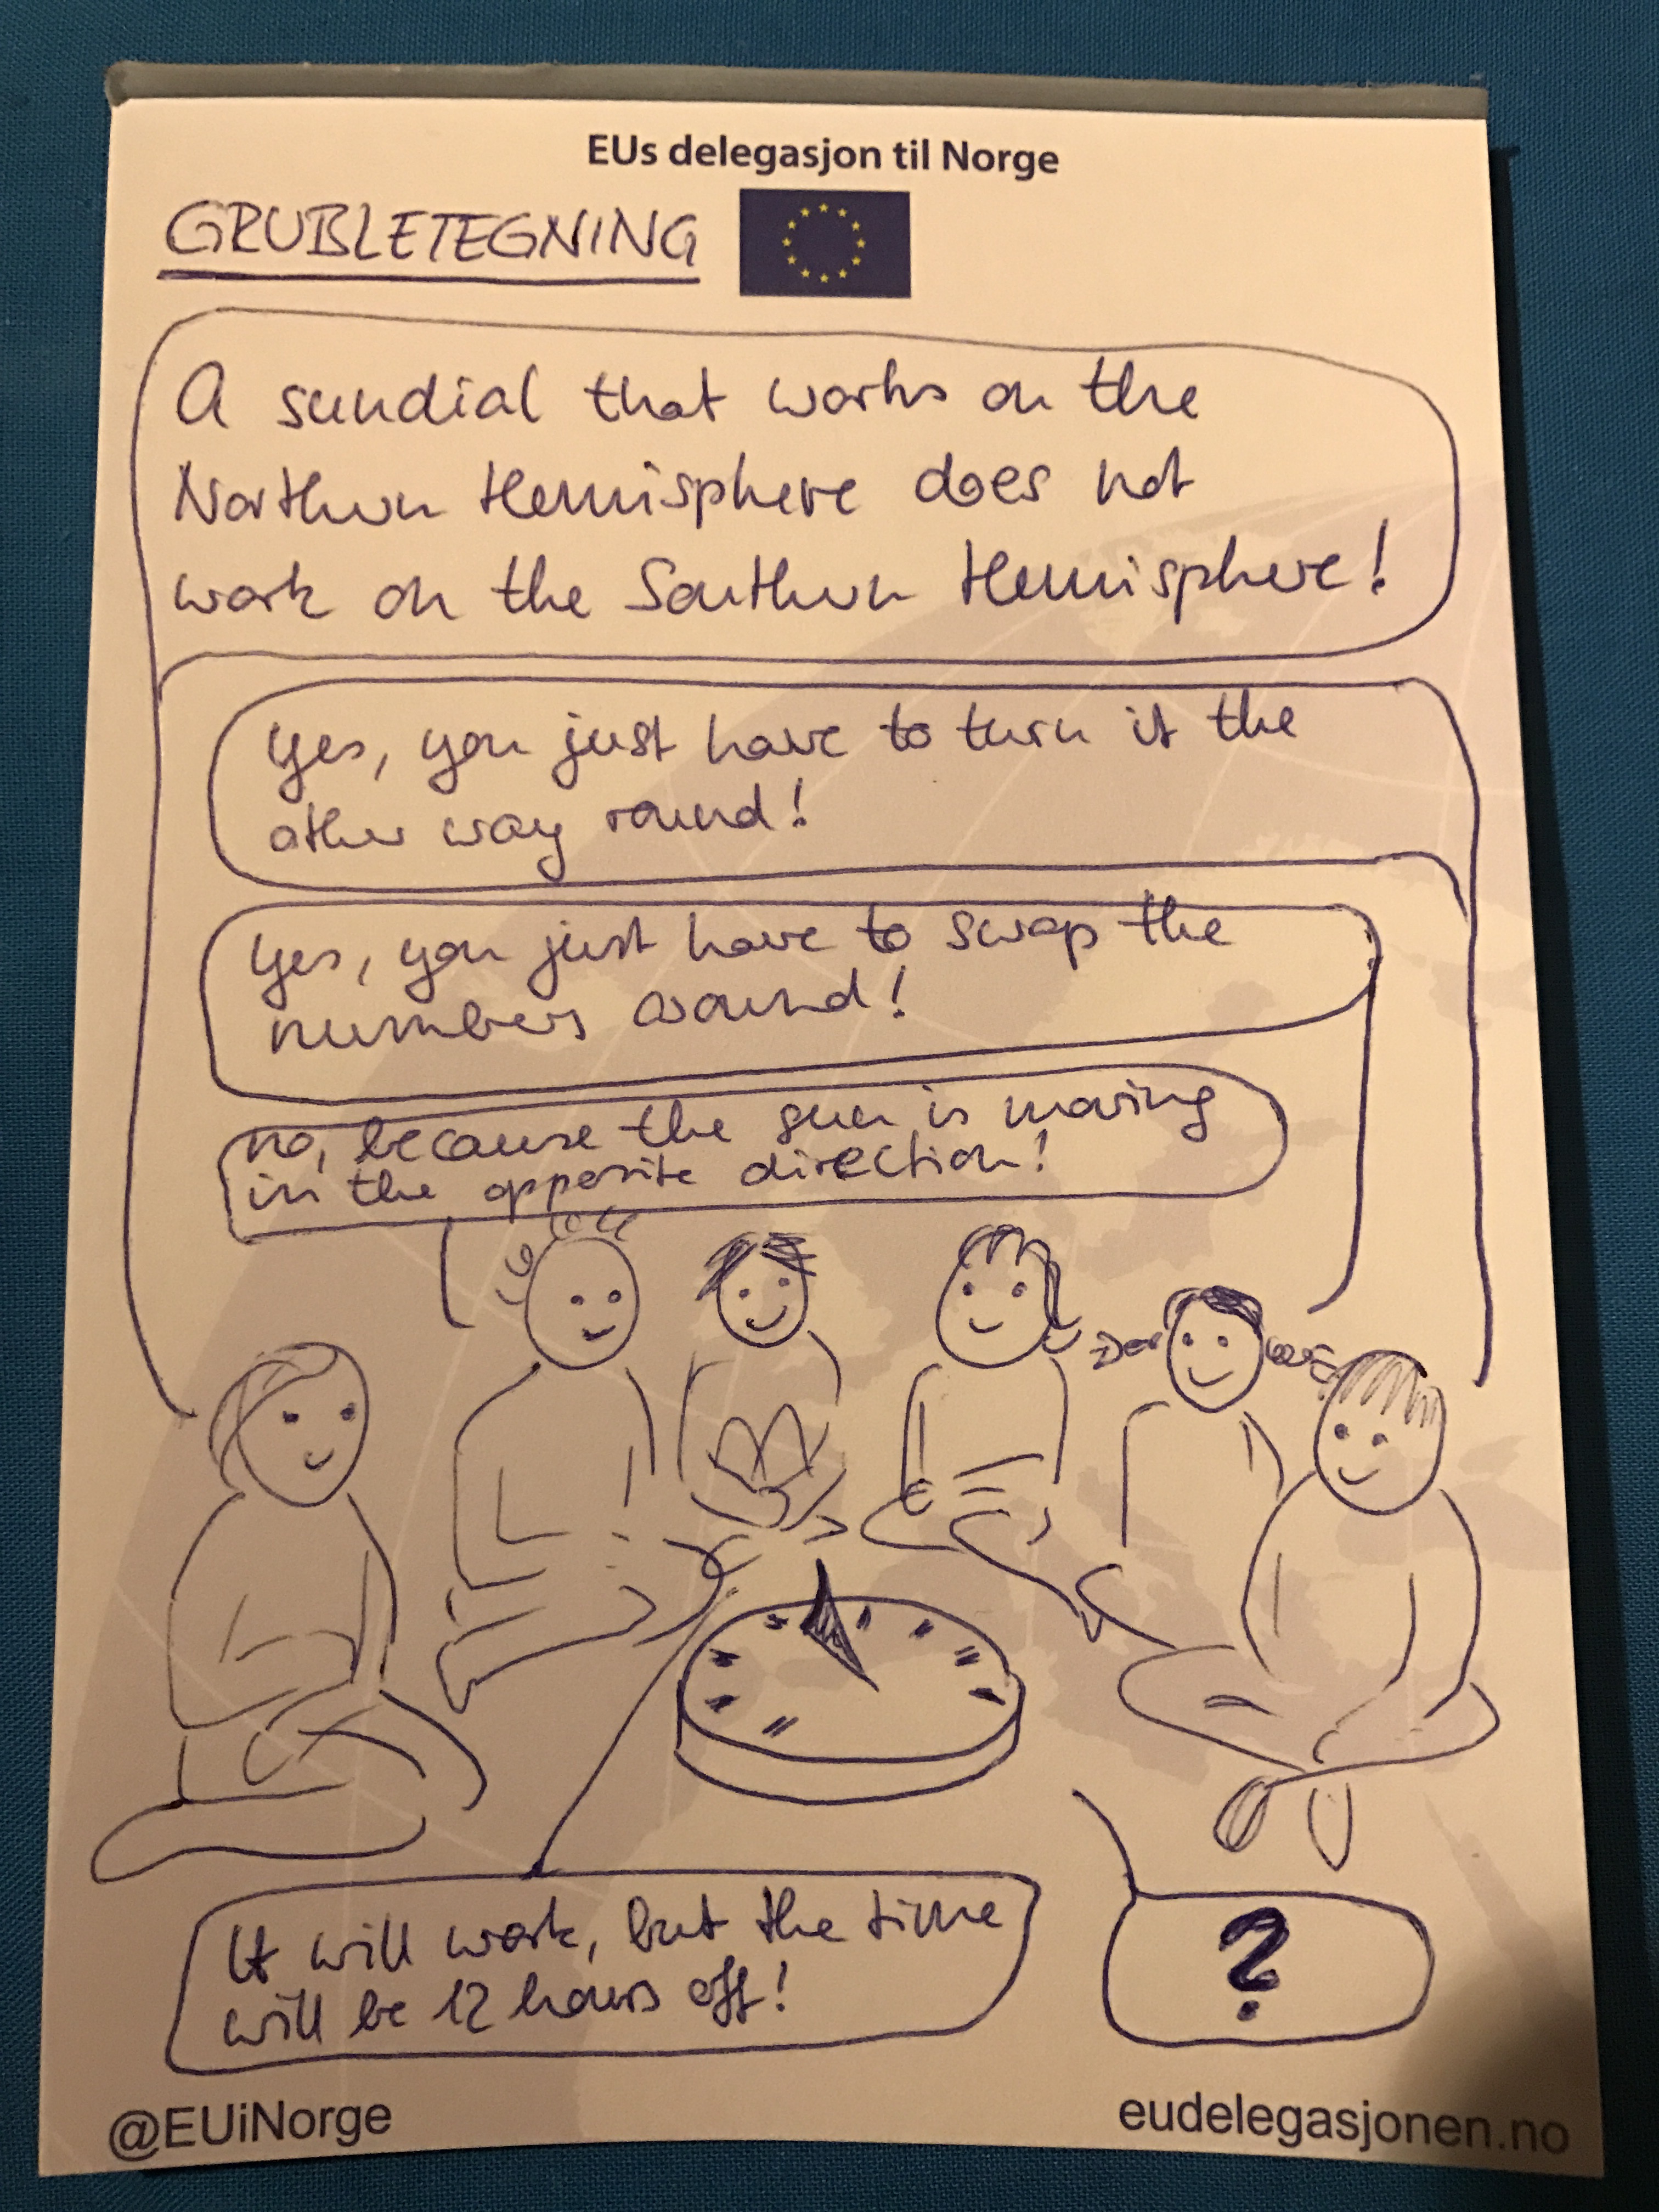 EUs delegasjon til Norge
GRUBLETEGNING
A sundial that works on the
Northern Hemisphere does not
work on the Southern Hemisphere!
Yes, you just have to turn it the
other way round!
Yes, you just have to swap the
numbers around!
no, because the sun is moving
in the opposite direction!
It will work, but the time
will be 12 hours off!
?
@EUiNorge
eudelegasjonen.no